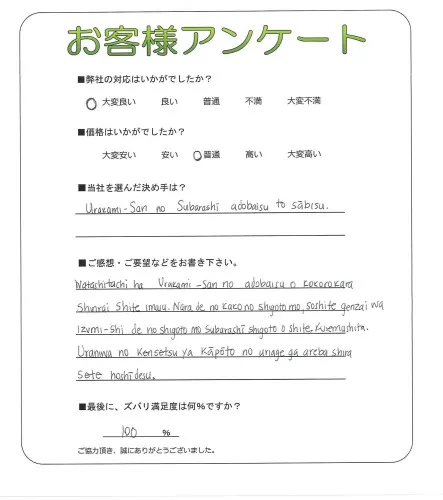 お客様アンケート
■弊社の対応はいかがでしたか？
大変良い 良い 普通 不満 大変不満
■価格はいかがでしたか？
大変安い 安い 普通 高い 大変高い
■当社を選んだ決め手は？
Urakami-San no Subarashī adobaisu to sābisu.
■ご感想・ご要望などをお書き下さい。
Watashitachi ha Urakami-San no adobaisu o kokorokara
Shinrai Shite imasu. Nara de no kako no shigoto mo, soshite genzai wa
Izumi-shi de no shigoto mo subarashī shigoto o shite kuremashita.
Uraniwa no kensetsu ya kāpōto no uriage ga areba shira
Sete hoshīdesu.
■最後に、ズバリ満足度は何%ですか？
100 %
ご協力頂き、誠にありがとうございました。